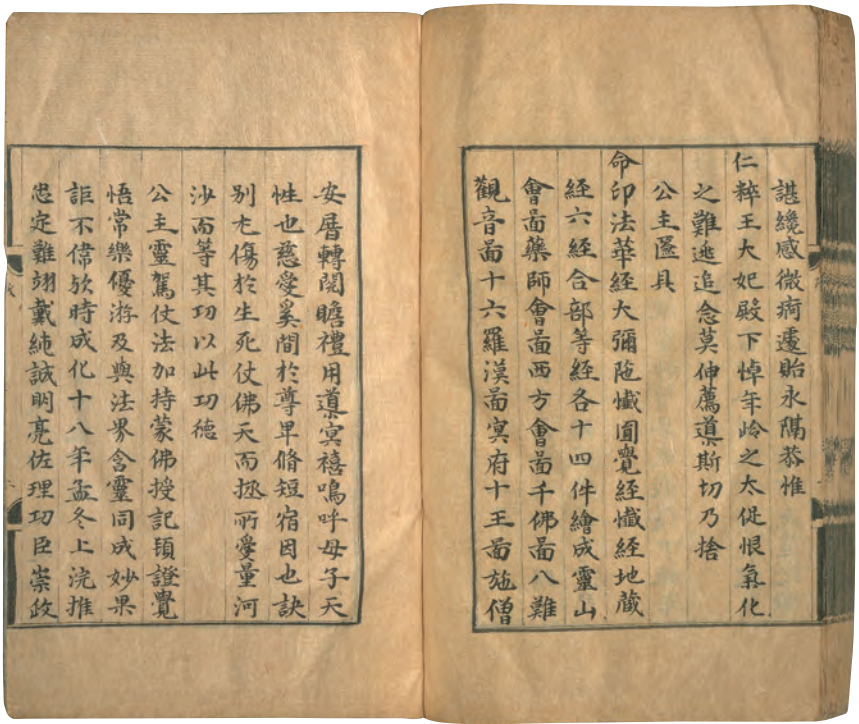 諶纔感微痾遽貽永隔恭惟
仁粹王大妃殿下悼年岭之太促恨氣化
之難逃追念莫伸薦導斯切乃捨
公主匳具
命印法華經大彌陁懺圎覺經懺經地蔵
經六經合部等經各十四件繪成靈山
會啚藥師會啚西方會啚千佛啚八難
觀音啚十六羅漢啚㝠府十王啚施僧
安厝轉閱瞻禮用導㝠禧嗚呼母子天
性也慈愛奚間於尊卑脩短宿因也訣
別尢傷於生死仗佛天而拯所愛量河
沙而等其功以此功德
公主靈駕仗法加持蒙佛授記頓證覺
悟常樂優游及與法界含靈同成妙果
詎不偉欤時成化十八年孟冬上浣推
忠定難翊戴純誠明亮佐理功臣崇政